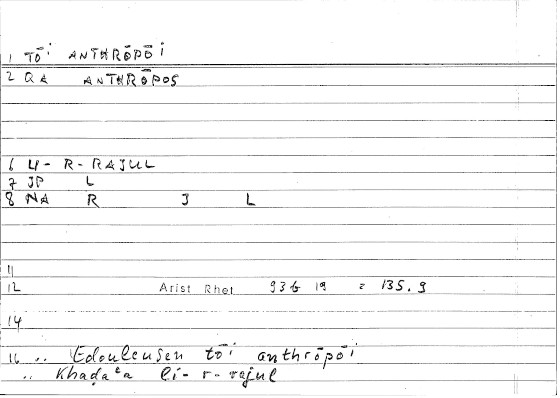 1 TŌi ANTHRŌPŌi
2 QA ANTHRŌPOS
6 LI- R-RAJUL
7 JP L
8 NA R J L
11
12 Arist Rhet 93b 19 = 135.9
14
16 .. Edouleusen tōi anthrōpōi
.. Khaḍaʿa li-r-rajul